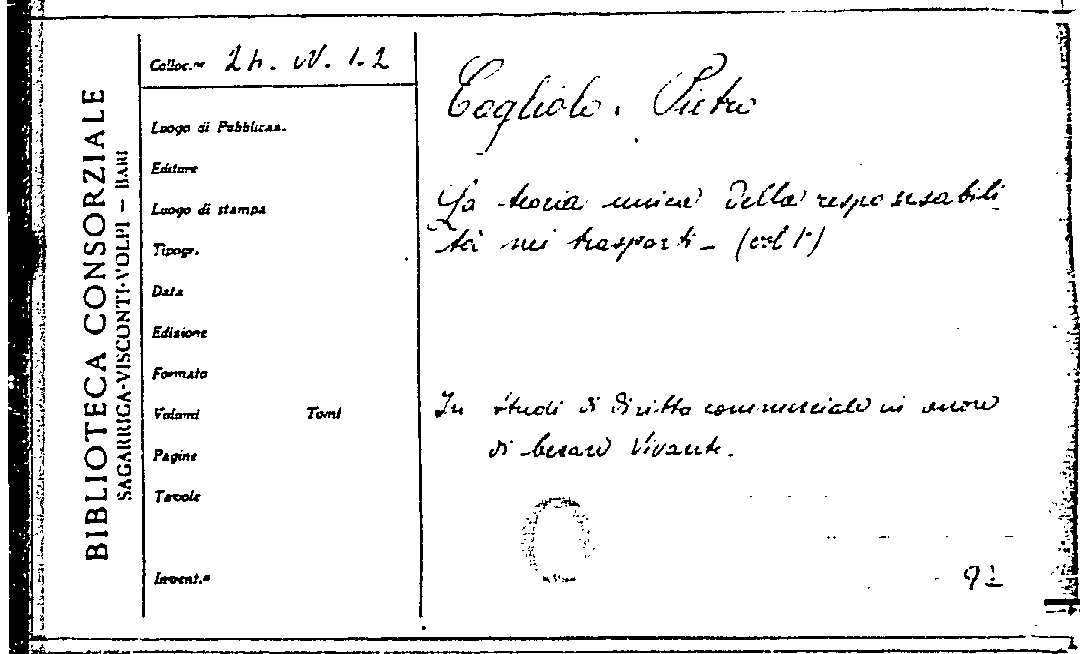 BIBLIOTECA CONSORZIALE
SAGARRIGA-VISCONTI-VOLPI — BARI
Colloc.ne 24. N. 1-2
Luogo di Pubblicaz.
Editore
Luogo di stampa
Tipogr.
Data
Edizione
Formato
Volumi Tomi
Pagine
Tavole
Invent.o
Cogliolo. Pietro
La teoria unica della responsabili
tà nei trasporti - (vol 1°)
In studi di diritto commerciale in onore
di Cesare Vivante.